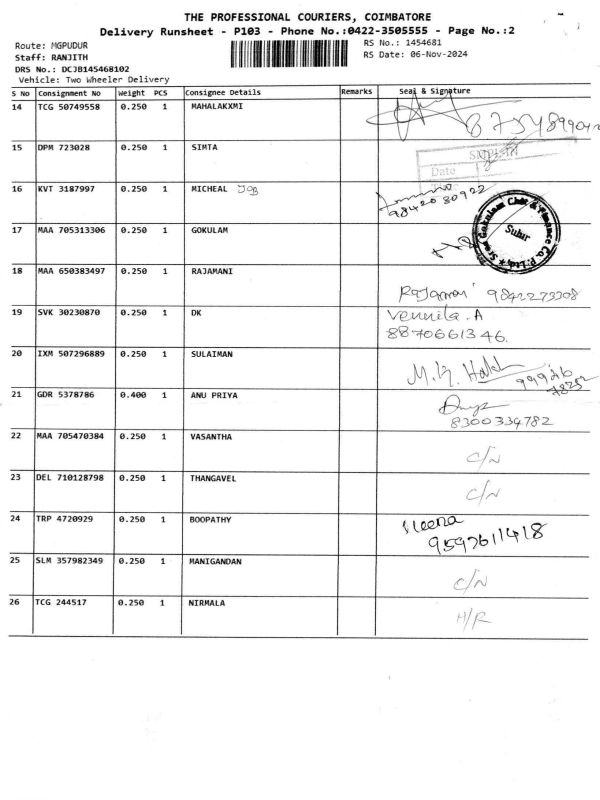 THE PROFESSIONAL COURIERS, COIMBATORE
Delivery Runsheet - P103 - Phone No.:0422-3505555 - Page No.:2
Route: MGPUDUR
RS No.: 1454681
Staff: RANJITH
RS Date: 06-Nov-2024
DRS No.: DCJB145468102
Vehicle: Two Wheeler Delivery
S No Consignment No Weight PCS Consignee Details Remarks Seal & Signature
14 TCG 50749558 0.250 1 MAHALAKXMI
15 DPM 723028 0.250 1 SIMTA
Date
16 KVT 3187997 0.250 1 MICHEAL JOB
9842080922
17 MAA 705313306 0.250 1 GOKULAM
Sree Gokulam Chit & Finance Co. P. Ltd. Sulur
18 MAA 650383497 0.250 1 RAJAMANI
Rajamani 9842273208
19 SVK 30230870 0.250 1 DK Vennila.A
8870661346.
20 IXM 507296889 0.250 1 SULAIMAN
21 GDR 5378786 0.400 1 ANU PRIYA
8300334782
22 MAA 705470384 0.250 1 VASANTHA C/N
23 DEL 710128798 0.250 1 THANGAVEL C/N
24 TRP 4720929 0.250 1 BOOPATHY
9597611418
25 SLM 357982349 0.250 1 MANIGANDAN C/N
26 TCG 244517 0.250 1 NIRMALA H/R